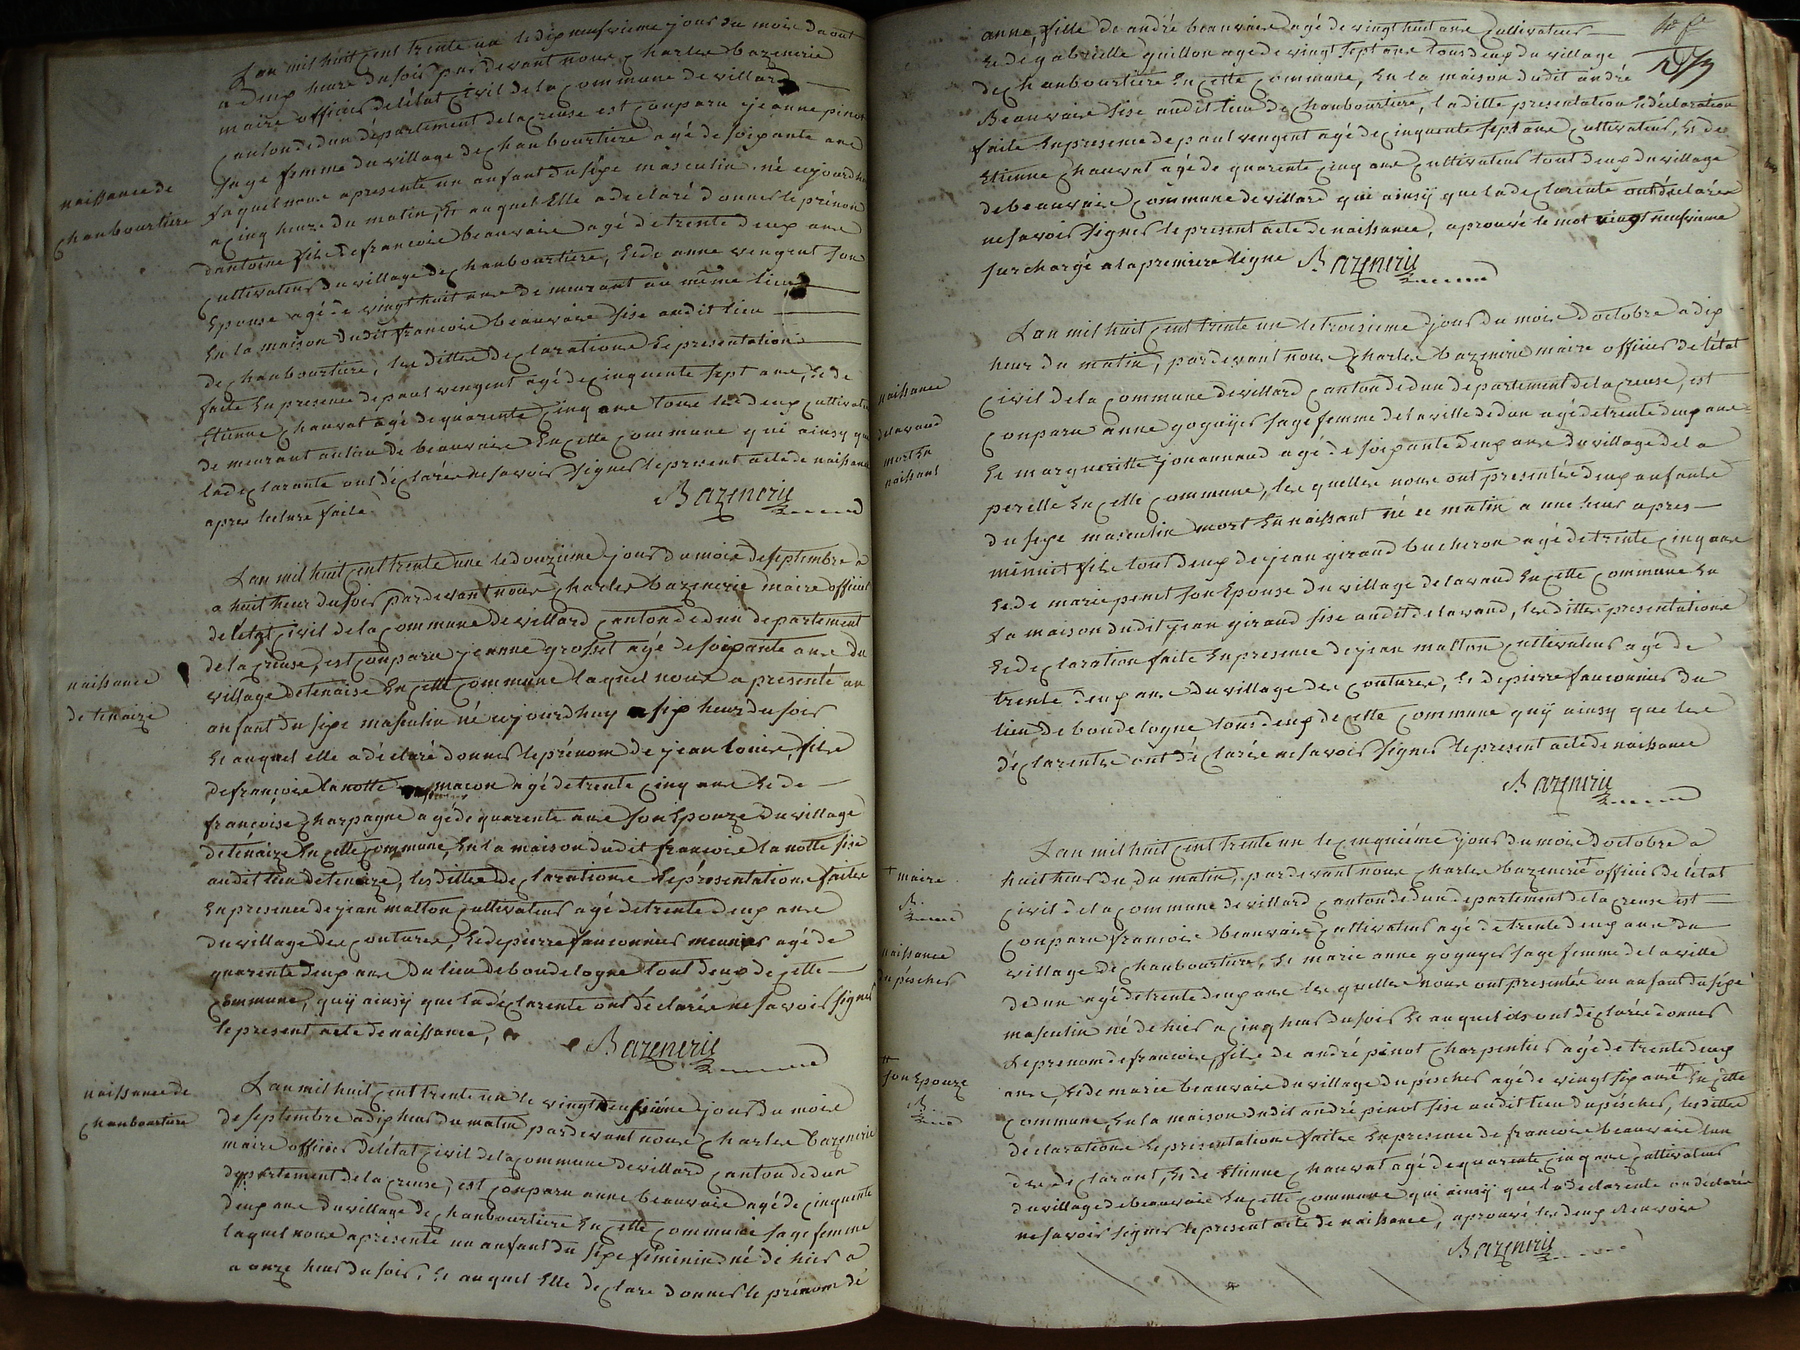 Lan mil huit cent trente un le dix neufvieme jour du mois daout
a deux heure du soir par devant nous charles bazenerie
maire officier de létat civil de la commune de villard
canton de dun département de la creuse est conparu jeanne pinot
sage femme du village de chanbourtiere agé de soixante ans
naissance de
chanbourtiere
laquel nous a presente un anfant du sexe masculin né cejourdhuy
a cinq heure du matin, et auquel Elle a declaré donner le prénom
dantoine fils de francois beauvais agé de trente deux ans
cultivateur du village de chanbourtiere, et de anne vengent son
Epouse agé de vingt huit ans demeurant au même lieu
En la maison dudit francois beauvais sise audit lieu
de chanbourtiere, les dittes declarations et presentations
faite En presence de paul vengent agé de cinquente sept ans, et de
Etienne chauvat agé de quarente cinq ans tous les deux cultivateur
demeurant au lieu de beauvais En cette commune qui ainsy que
la declarante ont déclarés ne savoir signer le present acte de naissance
apres lecture faite
Bazenerie
Lan mil huit cent trente une le douzieme jour du mois de septembre a
a huit heur du soir par devant nous charles bazenerie maire officier
de létat civil de la commune de villard canton de dun departement
de la creuse, est conparu jeanne grosset agé de soixante ans du
naissance
de tenaize
village de tenaise En cette commune laquel nous a presenté un
anfant du sexe masculin né cejourdhuy a six heur du soir
Et auquel elle a déclaré donner le prénom de jean louis, fils
de françois lanotte macon agé de trente cinq ans et de
françoise charpagne agé de quarente ans son Epouze du village
de ténaize En cette commune, En la maison dudit francois lanotte sise
audit lieu de tenaize, les dittes declarations et présentations faites
En presence de jean malton cultivateur agé de trente deux ans
du village des coutures, et de pierre fauconnier meunier agé de
quarente deux ans du lieu de boudelogne tout deux de cette
commune, quÿ ainsÿ que la déclarente ont déclarés ne savoir signer
le present acte de naissance,
Bazenerie
naissance de
chanbourtiere
Lan mil huit cent trente un le vingt neufvième jour du mois
de septembre a dix heur du matin par devant nous charles bazenerie
maire officier de létat civil de la commune de villard canton de dun
departement de la creuse, est conparu anne beauvais agé de cinquente
deux ans du village de chanbourtiere En cette commune sage femme
laquel nous a présenté un anfant du sexe féminin né de hier a
a onze heur du soir, et auquel Elle declare donner le prénom de
anne, fille de andré beauvais agé de vingt huit ans cultivateur
et de gabrielle guillon agé de vingt sept ans tous deux du village
de chanbourtiere En cette commune, En la maison dudit andré
Beauvais sise audit lieu de chanbourtiere, laditte presentation et déclaration
faite En presence de paul vengent agé de cinquente sept ans cultivateur, et de
Etienne chauvat agé de quarente cinq ans cultivateur tout deux du village
de beauvais commune de villard qui ainsÿ que la declarente ont déclarés
ne savoir signer le present acte de naissance, aprouvé le mot vingt neufvieme
surchargé a la premiere ligne
Bazenerie
Lan mil huit cent trente un le troisieme jour du mois doctobre a dix
heur du matin, par devant nous charles bazenerie maire officier de létat
naissance
delavaud
mort En
naissant
civil de la commune de villard canton de dun departement de la creuse, est
conparu anne goguyer sage femme de la ville de dun agé de trente deux ans
Et margueritte jouannaud agé de soixante deux ans du village de la
perelle En cette commune, les quelles nous ont presentée deux anfants
du sexe masculin mort En naissant né ce matin a une heur apres
minuit fils tout deux de jean giraud bucheron agé de trente cinq ans
Et de marie penet son Epouse du village de lavaud En cette commune En
la maison dudit jean giraud sise audit delavaud, les dittes presentations
Et declaration faite En presence de jean malton cultivateur agé de
trente deux ans du village des coutures, et de pierre fauconnier du
lieu de boudelogne tous deux de cette commune quÿ ainsy que les
déclarentes ont déclarés ne savoir signer le present acte de naissance
Bazenerie
Lan mil huit cent trente un le cinquième jour du mois doctobre a
+ maire
B.
huit heur du du matin, par devant nous charles bazenerie + officier de létat
civil de la commune de villard canton de dun departement de la creuse est
conparu francois beauvais cultivateur agé de trente deux ans du
naissance
du péscher
village de chanbourtiere, et marie anne goguyer sage femme de la ville
de dun agé de trente deux ans les quelles nous ont presentés un anfant du sexe
masculin né de hier a cinq heur du soir et auquel ils ont declarés donner
le prenom de francois, fils de andré pinot charpentier agé de trente deux
son Epouze
B.
ans, et de marie beauvais du village du péscher agé de vingt six ans En cette
commune, En la maison dudit andré pinot sise audit lieu du péscher, les dittes
déclarations et présentations faites En presence de francois beauvais lun
des declarant, et de Etienne chauvat agé de quarente cinq ans cultivateur
du village de beauvais En cette commune qui ainsÿ que la declarente on declarés
ne savoir signer le present acte de naissance, aprouvé les deux renvois
Bazenerie